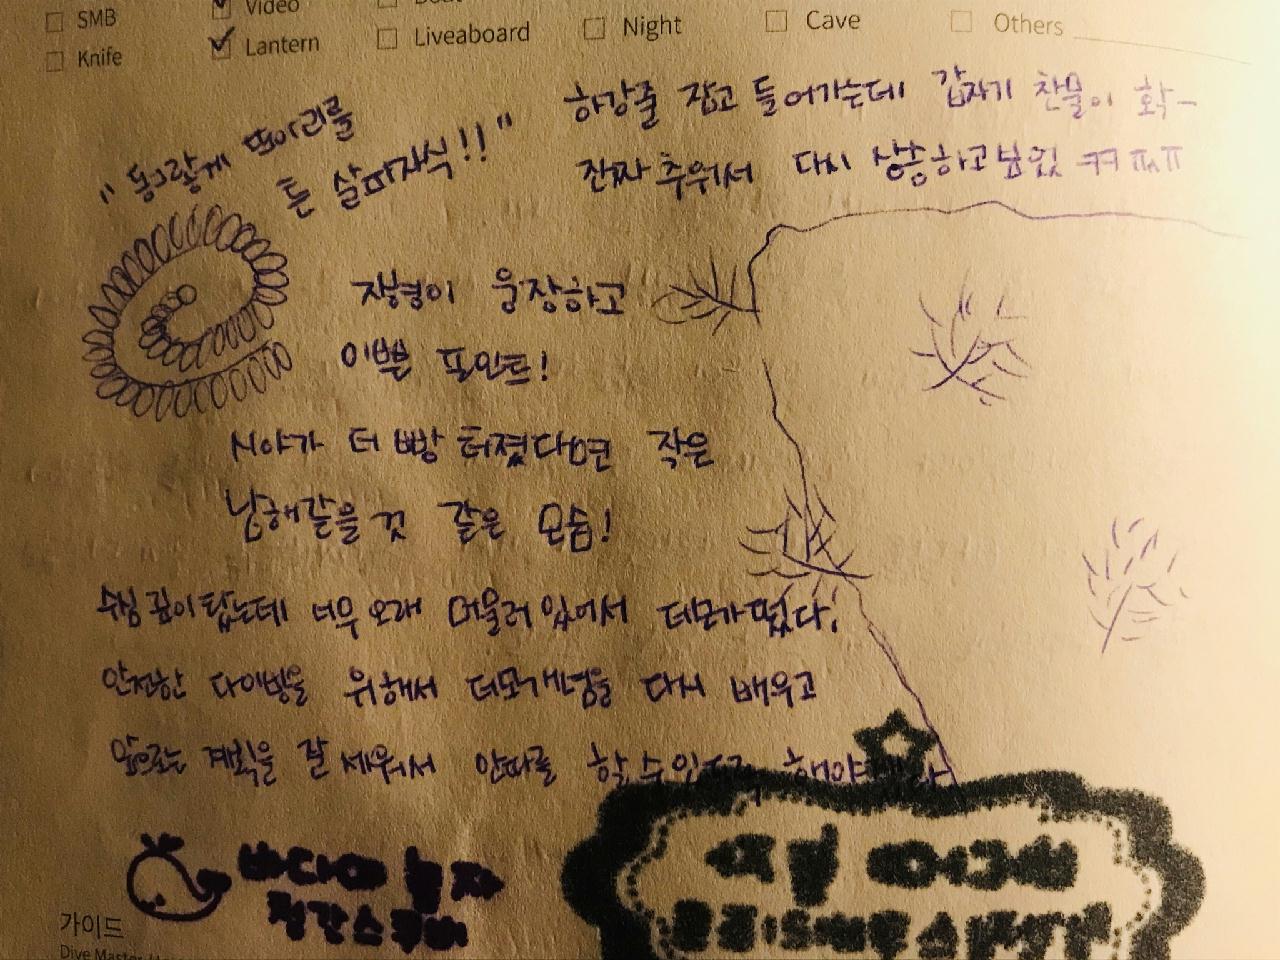 SMB
Video
Knife
Lantern
Liveaboard
Night
Cave
Others
하강줄 잡고 들어가는데 갑자기 찬물이 확-
진짜 추워서 다시 상승하고 ㅋㅋ ㅠㅠ
"동그랗게 또아리를
튼 살파자식!!"
지형이 웅장하고
이쁜 포인트!
시야가 더 빵 터졌다면 작은
남해같을 것 같은 모습!
수심 깊이 탑는데 너무 오래 머물러 있어서 데코가 떴다.
안전한 다이빙을 위해서 데코개념을 다시 배우고
앞으로는 계획을 잘 세워서 안따를 할 수 있
바다야 놀자
가이드
Dive Master